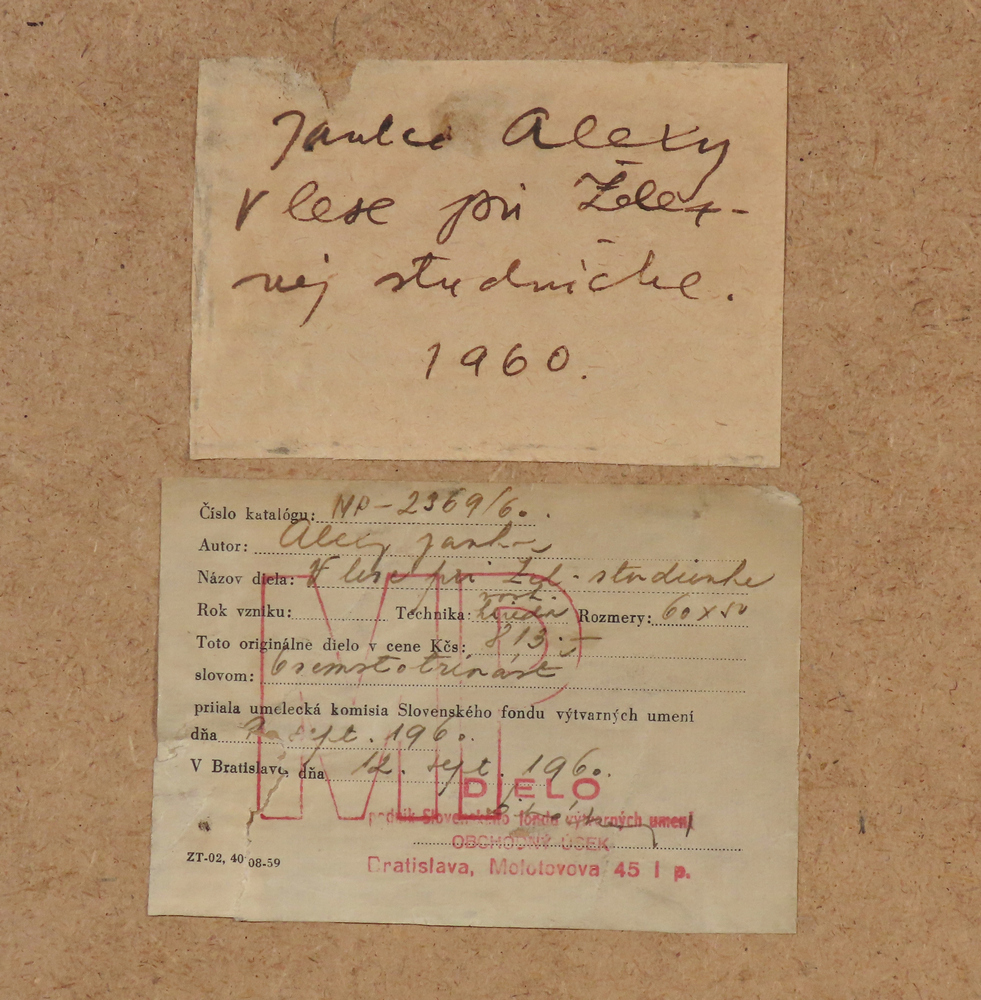 Janko Alexy
V lese pri Želez-
nej studničke.
1960.
Číslo katalógu: NP-2369/60.
Autor: Alexy Janko
Názov diela: V lese pri Žel. studienke
Rok vzniku: Technika: hnedá Rozmery: 60 x 50
Toto originálne dielo v cene Kčs: 813.-
slovom: Osemstotrinásť
prijala umelecká komisia Slovenského fondu výtvarných umení
dňa sept. 1960.
V Bratislave, dňa 12. sept. 1960.
DIELO
podnik Slovenského fondu výtvarných umení
OBCHODNÝ ÚSEK
Bratislava, Molotovova 45 I p.
ZT-02, 40 08-59